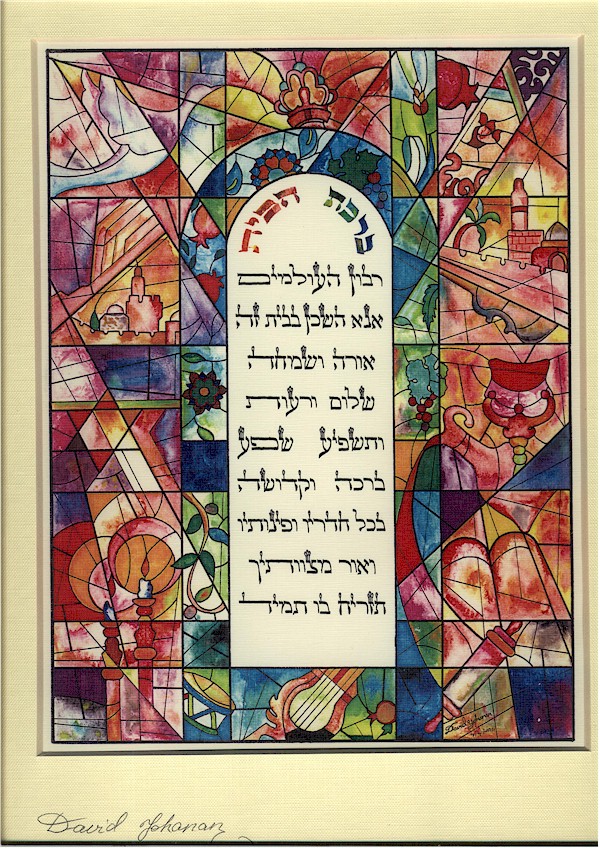 ברכת הבית
רבון העולמים
אנא השכן בבית זה
אורה ושמחה
שלום ורעות
ותשפיע שפע
ברכה וקדושה
בכל חדריו ופינותיו
ואור מצוותיך
תזריח בו תמיד
David Johanan